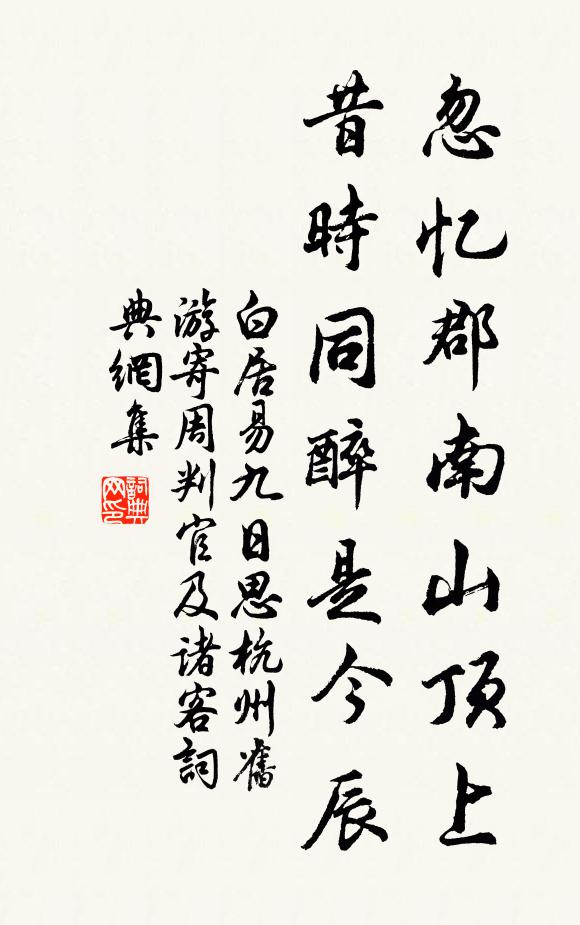 忽忆郡南山顶上
昔時同醉是今辰
白居易九日思杭州舊
游寄周判官及诸客詞
典網集
詞典网印